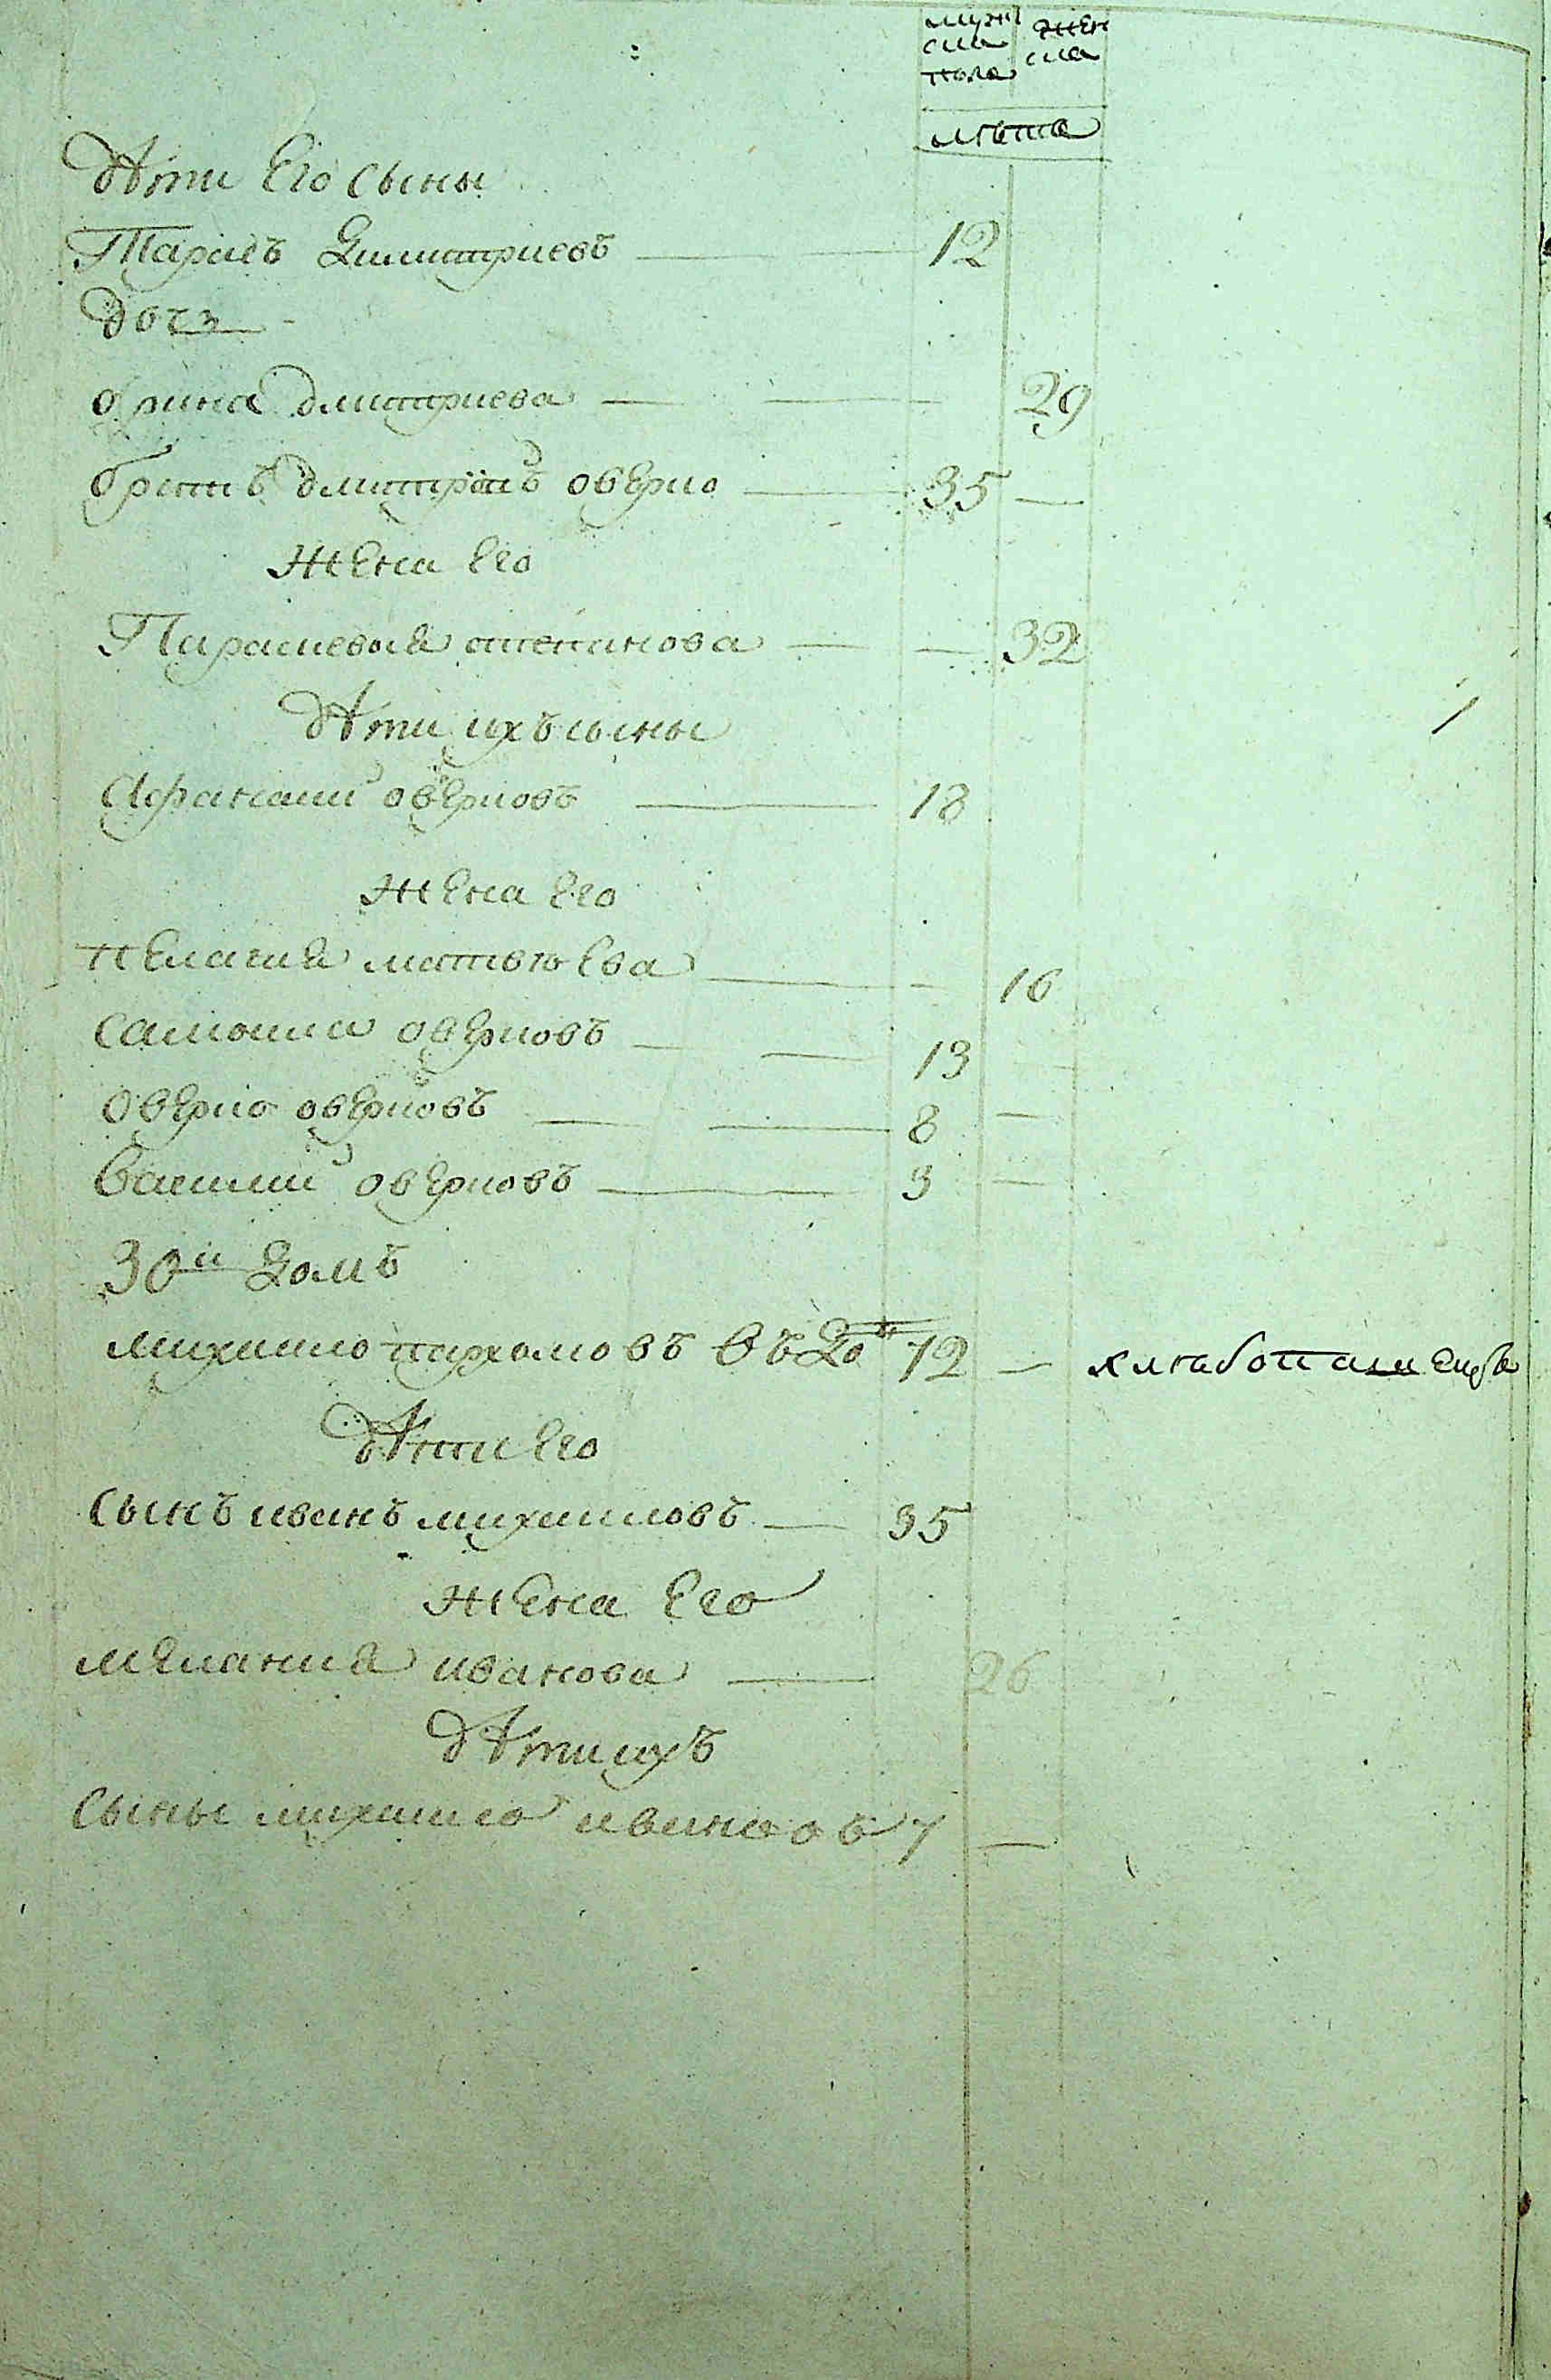 мужс жен
ска ска
пола
лѣта
дѣти Его сыны
Тарасъ Димитриевъ 12
дочь
орина дмитриева 29
братъ дмитрѣевъ овЕрко 35
жЕна Его
Параскевия степанова 32
дѣти ихъ сыны
Афанасий овЕрковъ 18
жЕна Его
пЕлагия матвѣЕва 16
самоила овЕрковъ 13
овЕрко овЕрковъ 8
василий овЕрковъ 3
30й Домъ
михаило пархомовъ 72 хлѣбопашецъ
дѣти Его
сынъ иванъ михаиловъ 35
жЕна Его
мЕлания иванова 26
дѣти ихъ
сыны михаило ивановъ 7